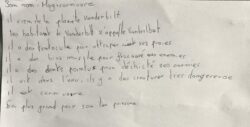 Son nom : Magicornivore
il vien de la planète Vanderbilt
les habitants de Vanderbilt s'appelle Vanderilbot
il a des tentacule pour attraper ses proies
il a des bras pour ses enemies
il a des dents pointus pour déchiété ses enemies
il vit dans l'eau, il y a des créatures très dangereuse
il est carnivore
plus grand pour son